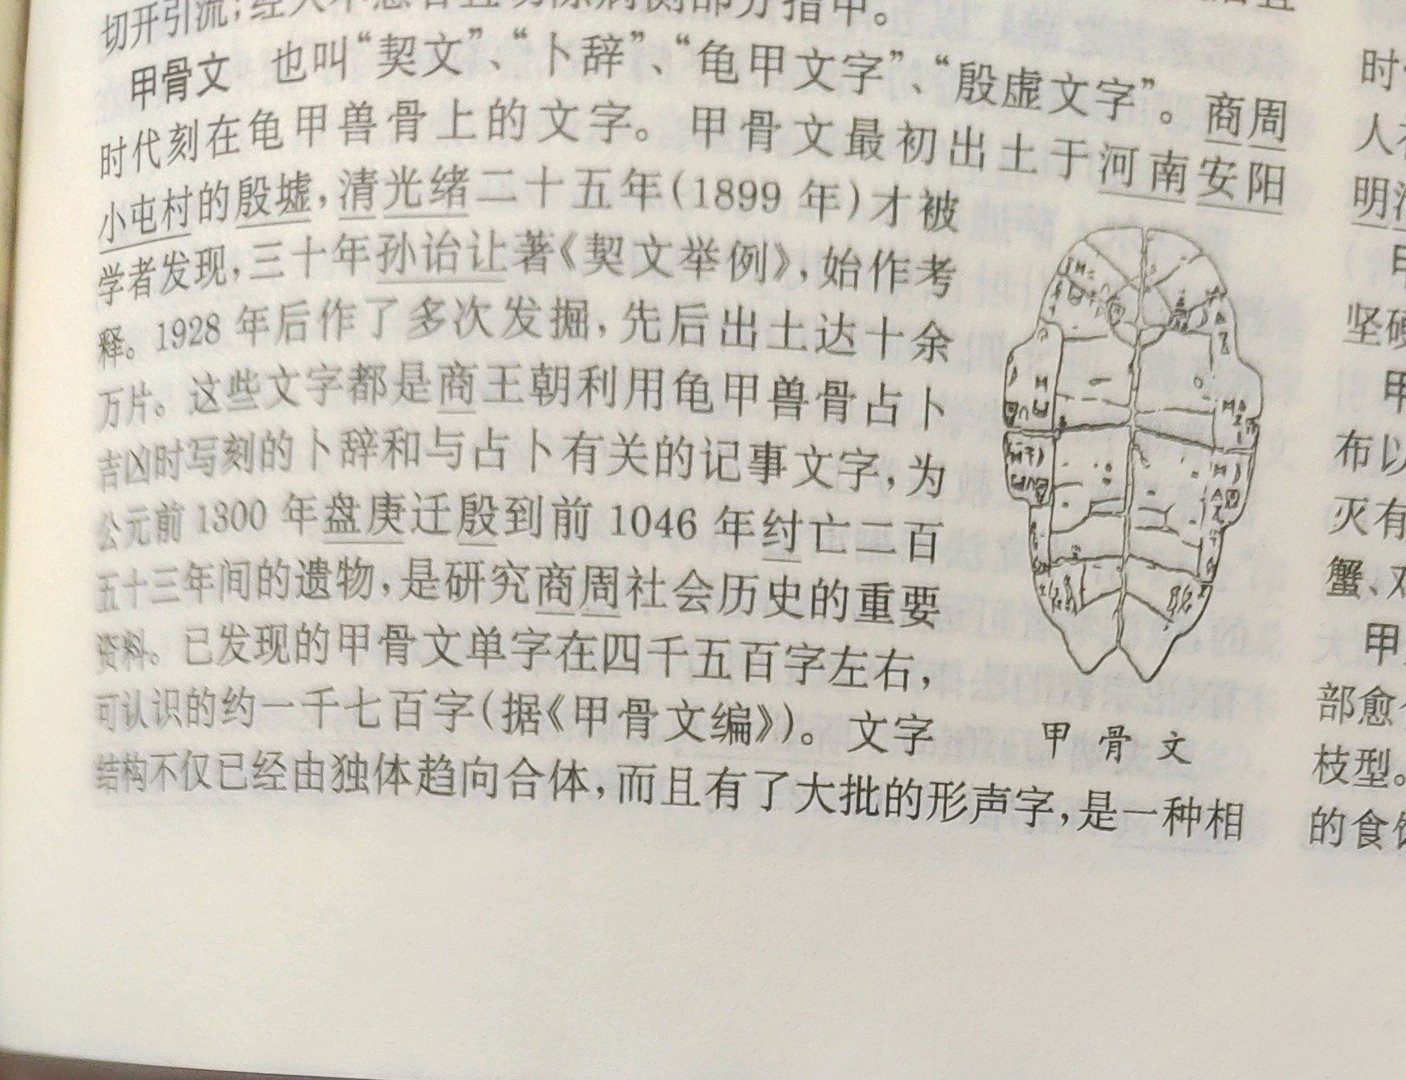 切开引流;经久不愈者且切除病侧部分指甲。
甲骨文 也叫“契文”、“卜辞”、“龟甲文字”、“殷虚文字”。商周
时代刻在龟甲兽骨上的文字。甲骨文最初出土于河南安阳
小屯村的殷墟,清光绪二十五年(1899 年)才被
学者发现,三十年孙诒让著《契文举例》,始作考
释。1928 年后作了多次发掘,先后出土达十余
万片。这些文字都是商王朝利用龟甲兽骨占卜
吉凶时写刻的卜辞和与占卜有关的记事文字,为
公元前 1300 年盘庚迁殷到前 1046 年纣亡二百
五十三年间的遗物,是研究商周社会历史的重要
资料。已发现的甲骨文单字在四千五百字左右,
可认识的约一千七百字(据《甲骨文编》)。文字
结构不仅已经由独体趋向合体,而且有了大批的形声字,是一种相
甲骨文
时
人
明
甲
坚硬
甲
布以
灭有
蟹、
甲
部愈
枝型。
的食